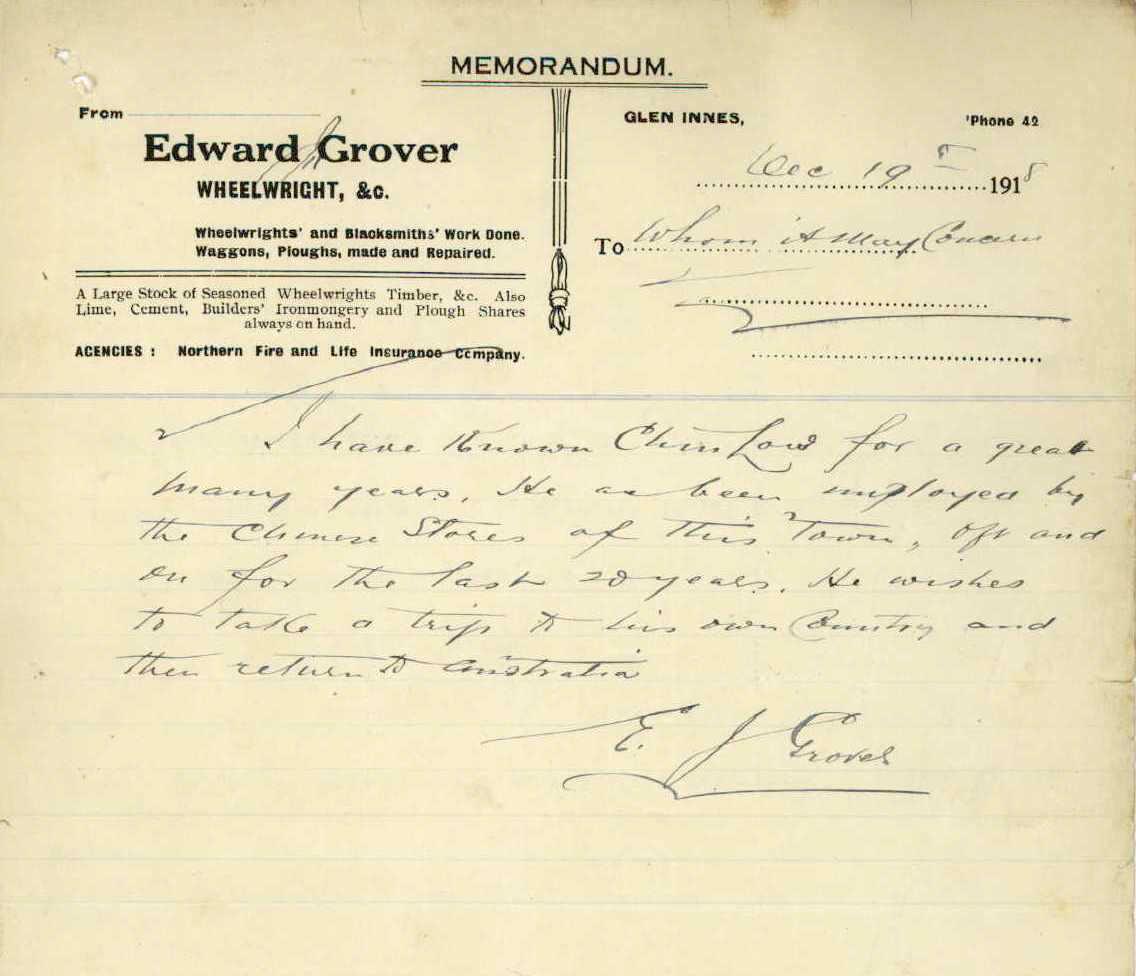 MEMORANDUM.
From
Edward J Grover
WHEELWRIGHT, &c.
Wheelwrights' and Blacksmiths' Work Done.
Waggons, Ploughs, made and Repaired.
A Large Stock of Seasoned Wheelwrights Timber, &c. Also
Lime, Cement, Builders' Ironmongery and Plough Shares
always on hand.
AGENCIES : Northern Fire and Life Insurance Company.
GLEN INNES,
'Phone 42
Dec 19th 1918
To Whom it May Concern
I have Known Chin Low for a great
many years. He as been employed by
the Chinese Stores of this Town, off and
on for the last 20 years. He wishes
to take a trip to his own Country and
then return to Australia
E. J Grover